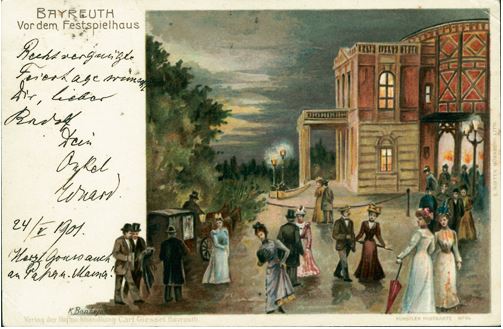 BAYREUTH
Vor dem Festspielhaus
Recht vergnügte
Feiertage
Dir, lieber
Rudolf
Dein
Onkel
Eduard.
24/V 1901.
Herzl. Gruss auch
an Papa u. Mama.
Verlag der Hofbuchhandlung Carl Giessel Bayreuth
KÜNSTLER POSTKARTE No